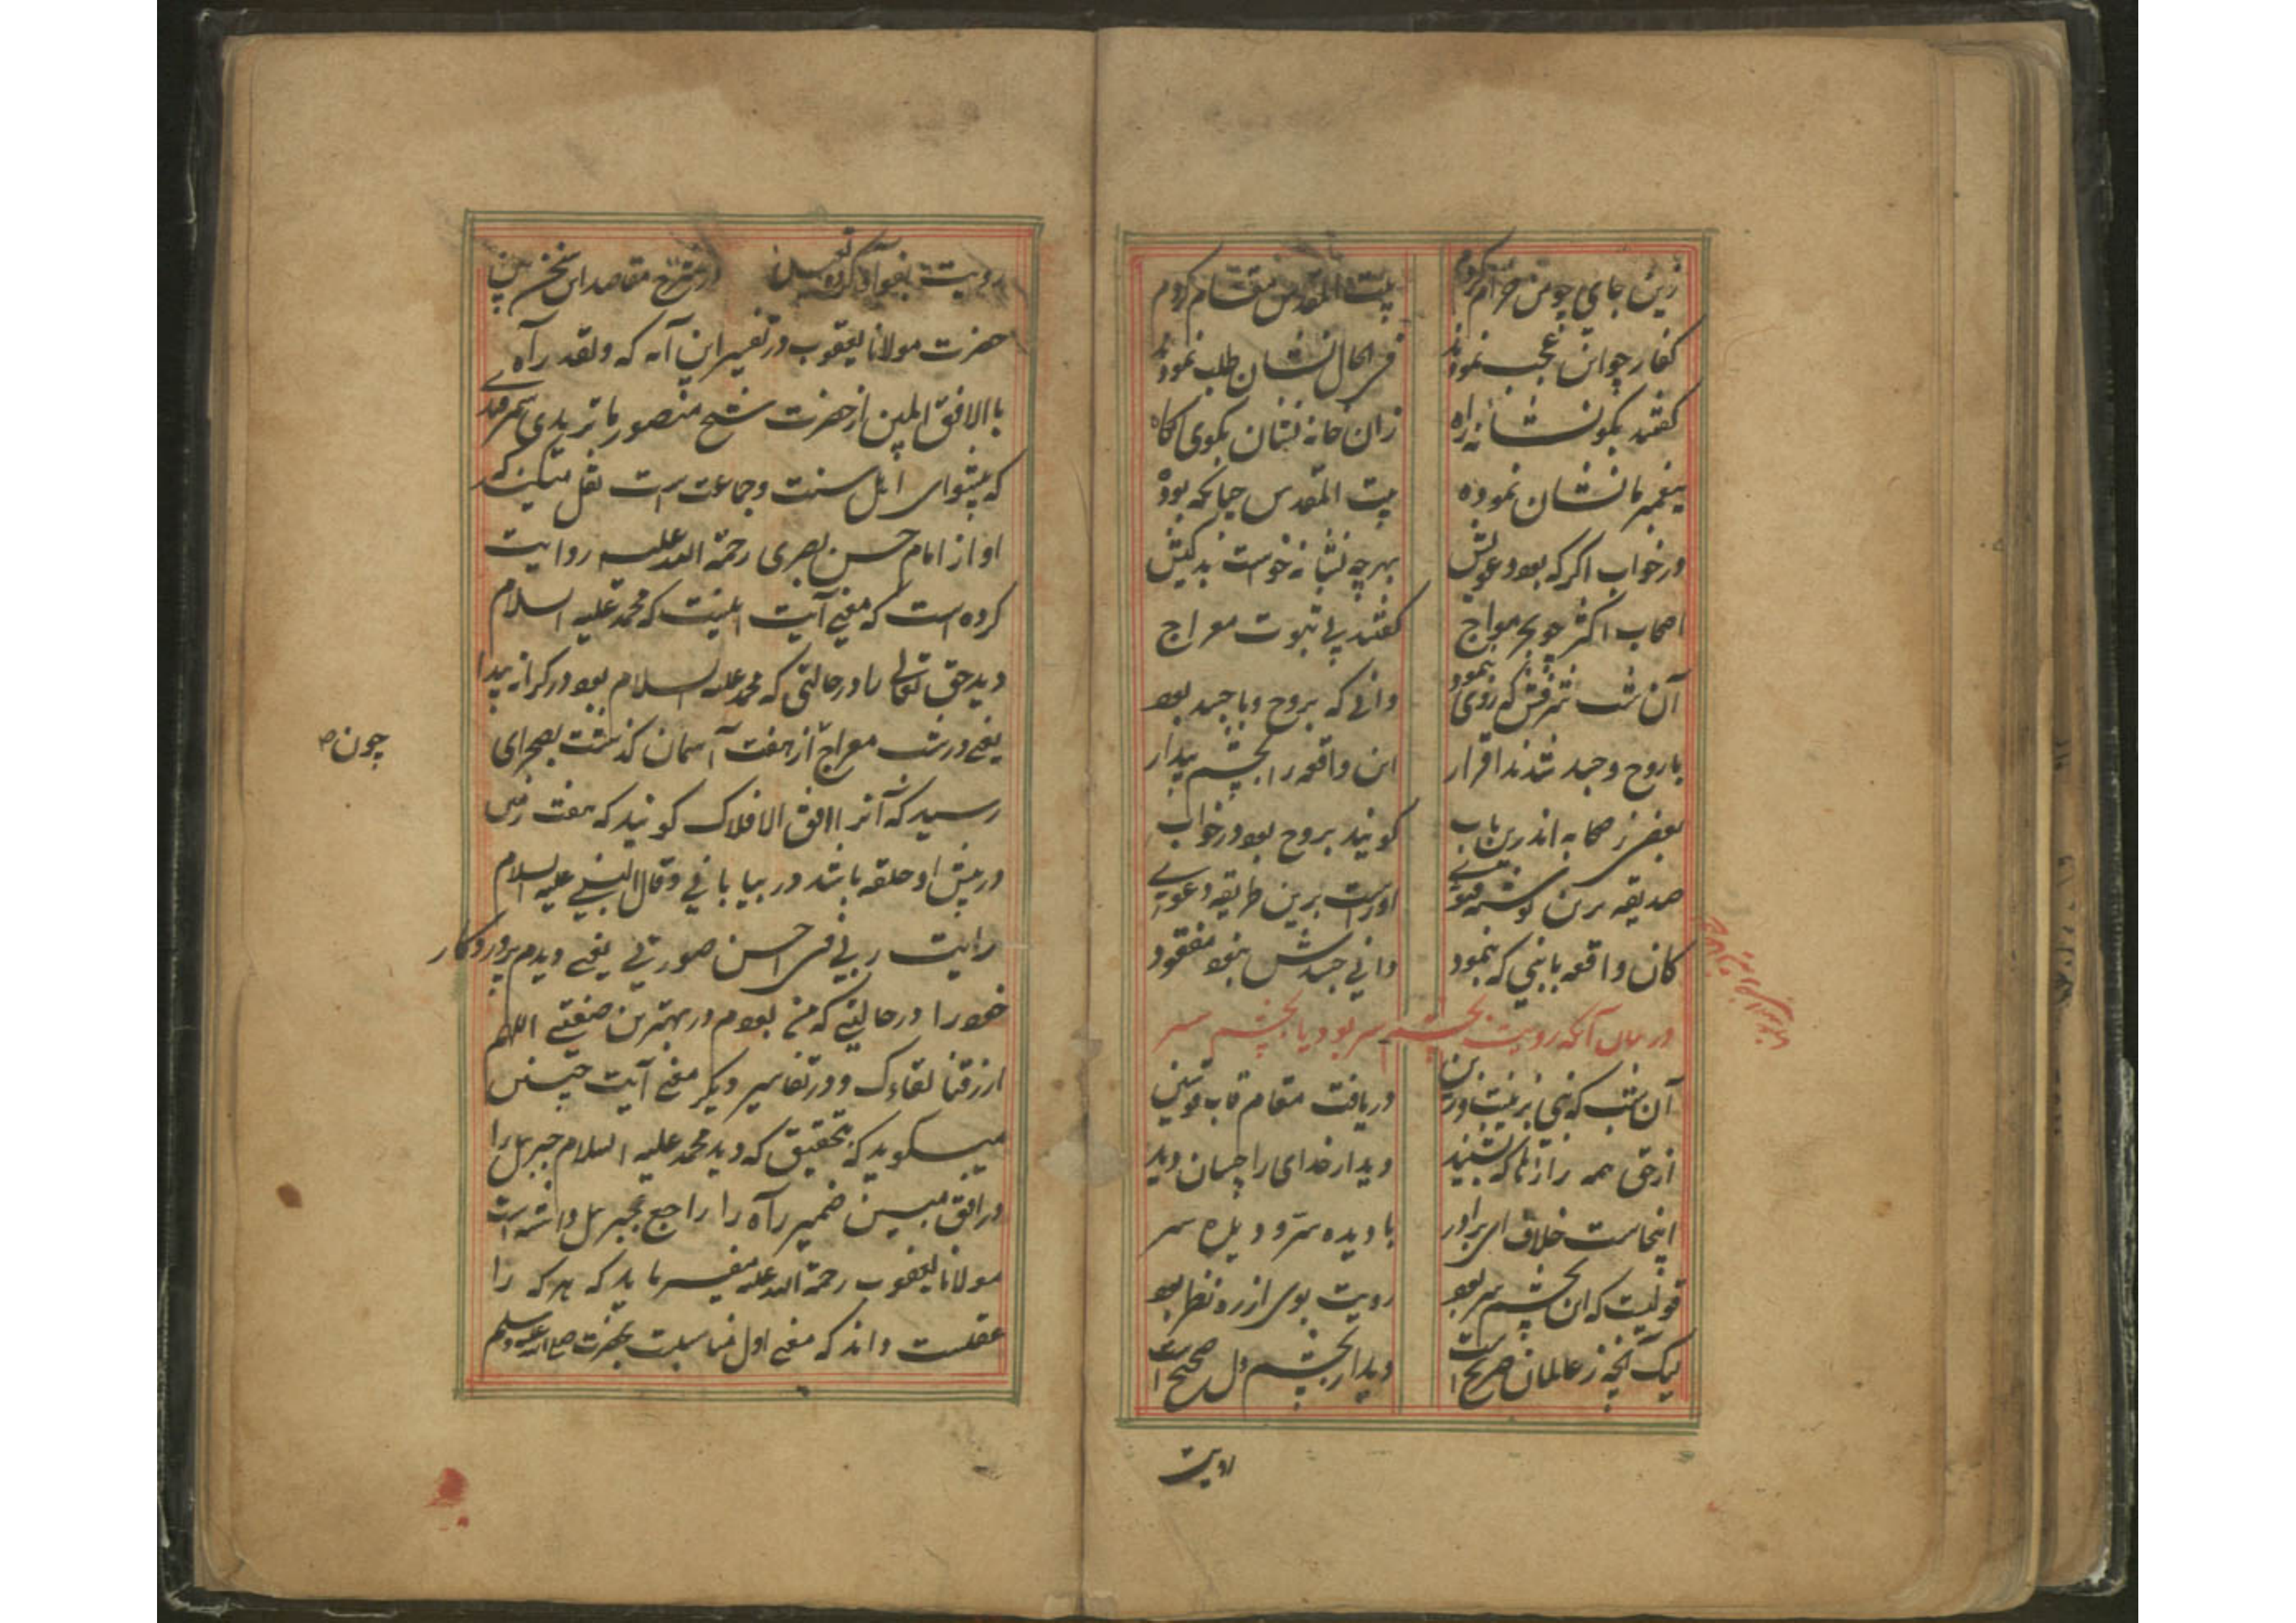 زین جای چو من خرام کردم بیت المقدس مقام کردم
کفار چو این عجب نمودند فی الحال نشان طلب نمودند
گفتند بگو نشانه راه زان خانه نشان بگوی کاه
پیغمبر ما نشان نموده بیت المقدس چنانکه بوده
در خواب اگر که بود دعویش بهر چه نشانه خواست بدکیش
اصحاب اکثر چو بحر مواج گفتند پی ثبوت معراج
آن شب شرفش که روی بنمود دانی که بروح و با جسد بود
با روح و جسد شدند اقرار این واقعه را بچشم بیدار
بعضی ز صحابه اندرین باب گویند بروح بود در خواب
صدیقه برین فتوی اوراست برین طریقه دعوی
کان واقعه با نبی که بنمود دانی جسدش نبود مفقود
در بیان آنکه رویت بچشم سر بود یا بچشم سر
آن شب که نبی بزینت و زین دریافت مقام قاب قوسین
از حق همه رازها که بشنید دیدار خدای را چسان دید
اینجاست خلاف ای برادر با دیده سرّ و دیده سر
قولیست که آن بچشم سر بود رویت بوی از ره نظر بود
لیک آنچه ز عالمان صریح است دیدار بچشم دل صحیح است
رویت
رویت بفواد در شرح مقاصد این سخن بین
حضرت مولانا یعقوب در تفسیر این آیه که ولقد رآه
باالافق المبین از حضرت شیخ منصور ماتریدی سمرقندی
که پیشوای اهل سنت و جماعت است نقل میکند که
او از امام حسن بصری رحمة الله علیه روایت
کرده است که معنی آیت اینست که محمد علیه السلام
دید حق تعالی را در حالتی که محمد علیه السلام بود در کرانه پیدا
یعنی در شب معراج از هفت آسمان گذشت بصحرای
چون
رسید که آنرا افق الافلاک گویند که هفت زمین
در پیش او حلقه باشد در بیابانی و قال النبی علیه السلام
رایت ربی فی احسن صورتی یعنی دیدم پروردگار
خود را در حالتی که من بودم در بهترین صفتی اللهم
ارزقنا لقاءک و در تفاسیر دیگر معنی آیت چنین
میگوید که بتحقیق که دید محمد علیه السلام جبریل را
در افق مبین ضمیر رآه را راجع بجبریل داشته است
مولانا یعقوب رحمة الله علیه میفرماید که هر که را
عقلست داند که معنی اول مناسبت بحضرت صلی الله علیه وسلم